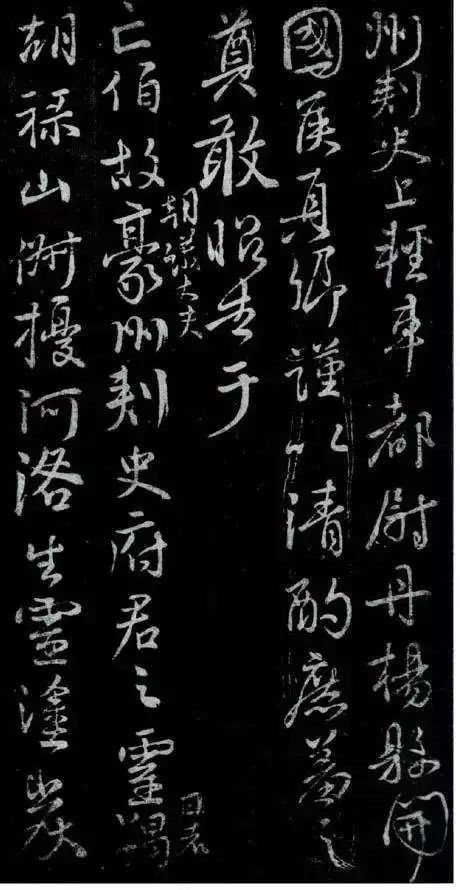 州刾史上輕車都尉丹楊縣開
國侯真卿謹以清酌庶羞之
奠敢昭告于
朝議大夫
日者
亡伯故豪州刾史府君之靈羯
胡祿山俶擾河洛生靈塗炭